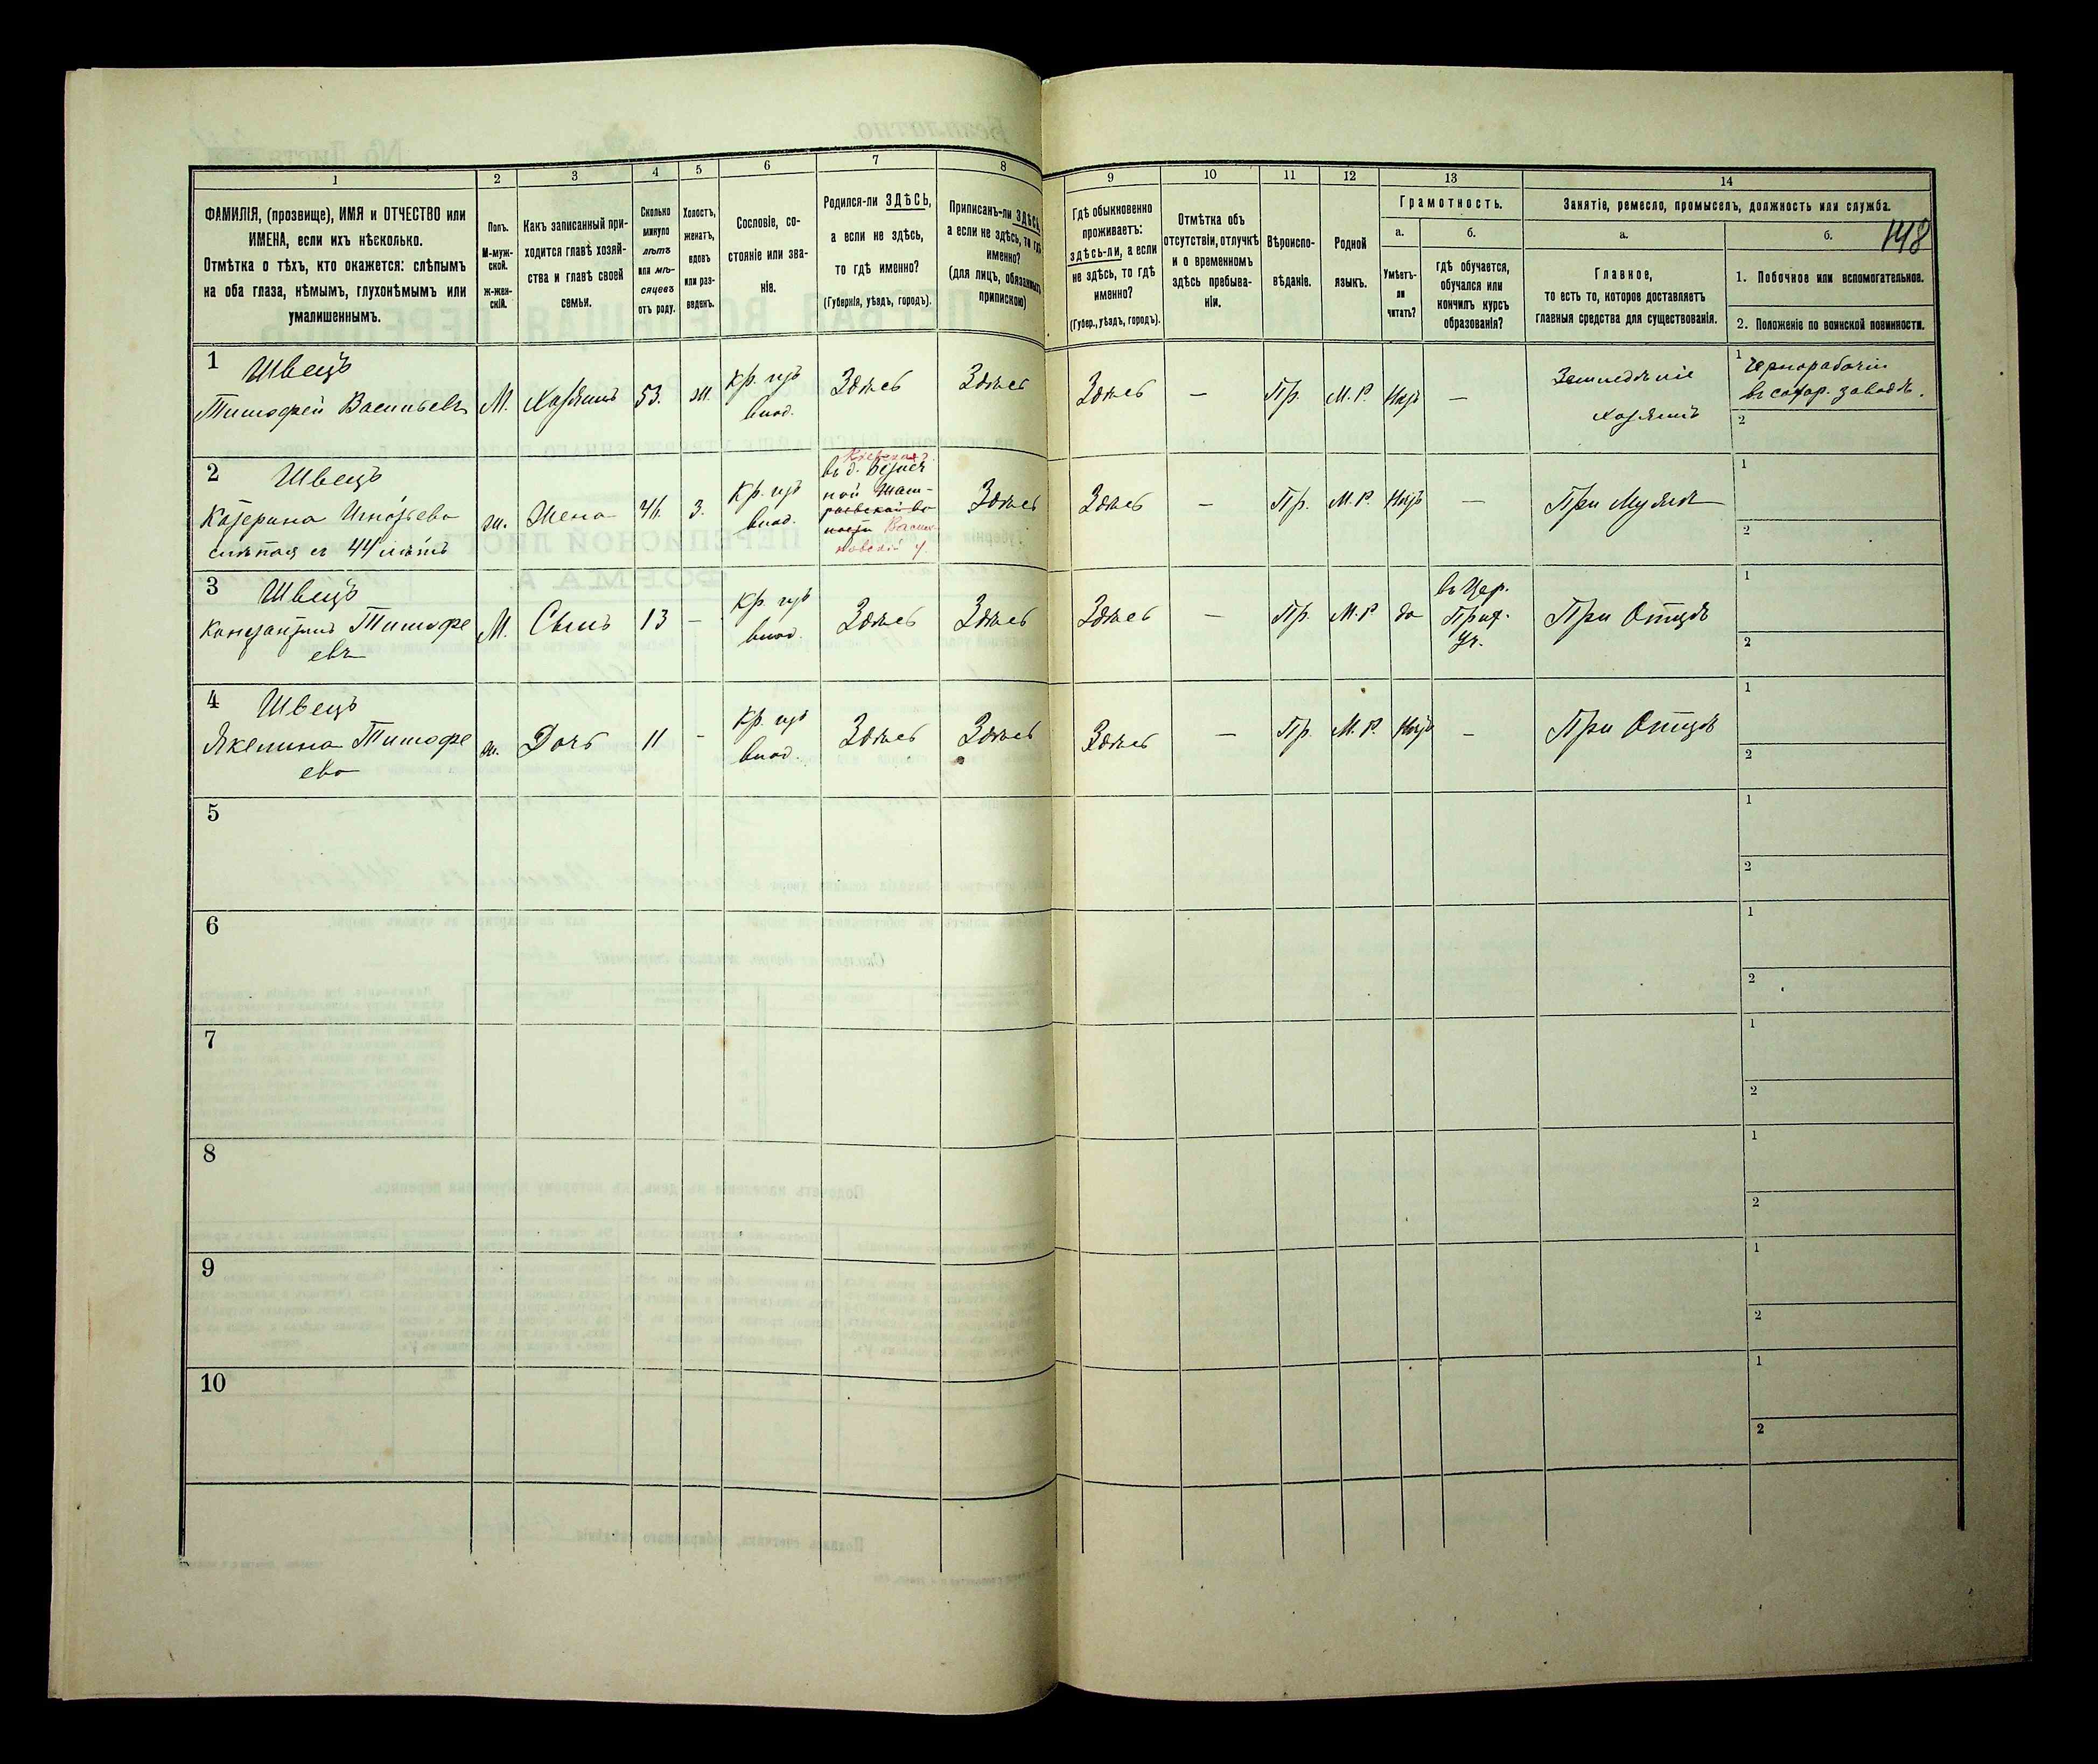 1
2
3
4
5
6
7
8
ФАМИЛІЯ, (прозвище), ИМЯ и ОТЧЕСТВО или
ИМЕНА, если ихъ нѣсколько.
Отмѣтка о тѣхъ, кто окажется: слѣпымъ
на оба глаза, нѣмымъ, глухонѣмымъ или
умалишеннымъ.
Полъ.
М-муж-
ской.
ж-жен-
скій.
Какъ записанный при-
ходится главѣ хозяй-
ства и главѣ своей
семьи.
Сколько
минуло
лѣтъ
или мѣ-
сяцевъ
отъ роду.
Холостъ,
женатъ,
вдовъ
или раз-
веденъ.
Сословіе, со-
стояніе или зва-
ніе.
Родился-ли ЗДѢСЬ,
а если не здѣсь,
то гдѣ именно?
(Губернія, уѣздъ, городъ).
Приписанъ-ли ЗДѢСЬ,
а если не здѣсь, то гдѣ
именно?
(для лицъ, обязанныхъ
припискою)
9
10
11
12
13
14
Гдѣ обыкновенно
проживаетъ:
здѣсь-ли, а если
не здѣсь, то гдѣ
именно?
(Губер., уѣздъ, городъ).
Отмѣтка объ
отсутствіи, отлучкѣ
и о временномъ
здѣсь пребыва-
ніи.
Вѣроиспо-
вѣданіе.
Родной
языкъ.
Грамотность.
а.
Умѣетъ-
ли
читать?
б.
гдѣ обучается,
обучался или
кончилъ курсъ
образованія?
Занятіе, ремесло, промыселъ, должность или служба.
а.
Главное,
то есть то, которое доставляетъ
главныя средства для существованія.
б.
148
1. Побочное или вспомогательное.
2. Положеніе по воинской повинности.
1
Швецъ
Тимофей Васильевъ
М.
Хозяинъ
53.
ж.
кр. изъ
влад.
Здѣсь
Здѣсь
Здѣсь
—
Пр.
М. Р.
Нѣтъ
—
Земледѣліе
хозяинъ
1
Чернорабочій
въ сахар. заводѣ.
2
2
Швецъ
Катерина Игнатьева
слѣпая съ 44 лѣтъ
ж.
Жена
з.
Кр. изъ
влад.
Кіевская
въ д.
ной
волости
Васильковскій у.
Здѣсь
Здѣсь
—
Пр.
М. Р.
Нѣтъ
—
При Мужѣ
1
2
3
Швецъ
Константинъ Тимофе
евъ
М.
Сынъ
13
-
Кр. изъ
влад.
Здѣсь
Здѣсь
Здѣсь
—
Пр.
М. Р
да
въ Цер.
Прих.
Уч.
При Отцѣ
1
2
4
Швецъ
Якелина Тимофе
ева
ж.
Дочь
11
-
Кр. изъ
влад.
Здѣсь
Здѣсь
Здѣсь
—
Пр.
М. Р.
Нѣтъ
-
При Отцѣ
1
2
5
1
2
6
1
2
7
1
2
8
1
2
9
1
2
10
1
2